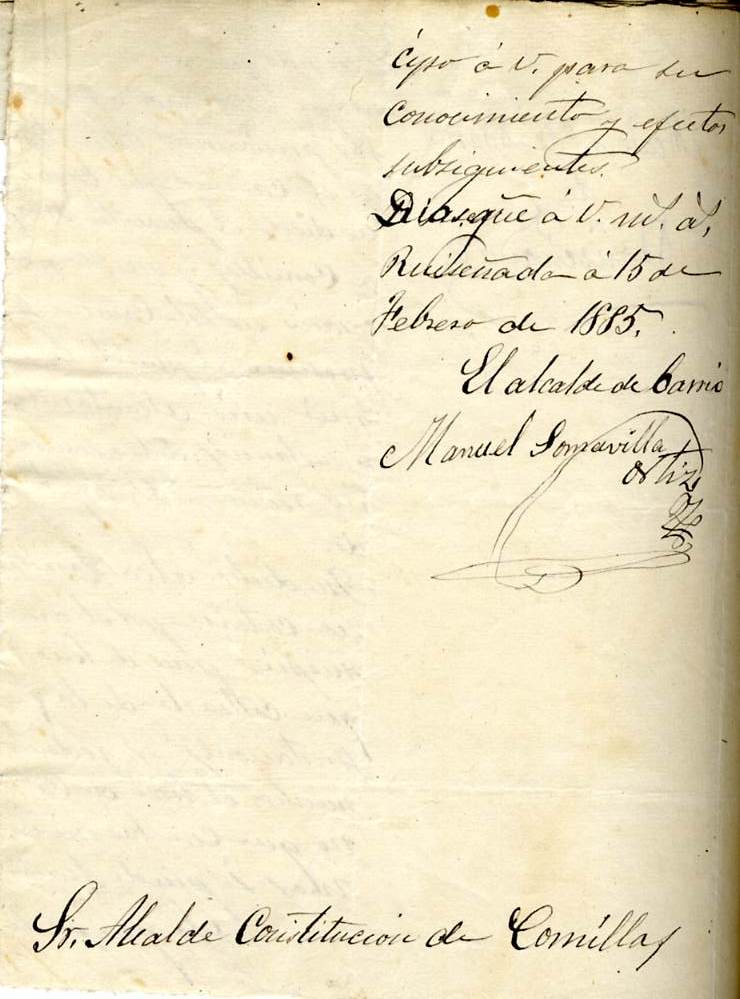 à V. para su
Conocimiento y efectos
subsiguientes.
Dios gũe á V. m. a.
Ruiseñada á 15 de
Febrero de 1885.
El alcalde de barrio
Manuel Somavilla
Ortiz
Sr. Alcalde Constitución de Comillas